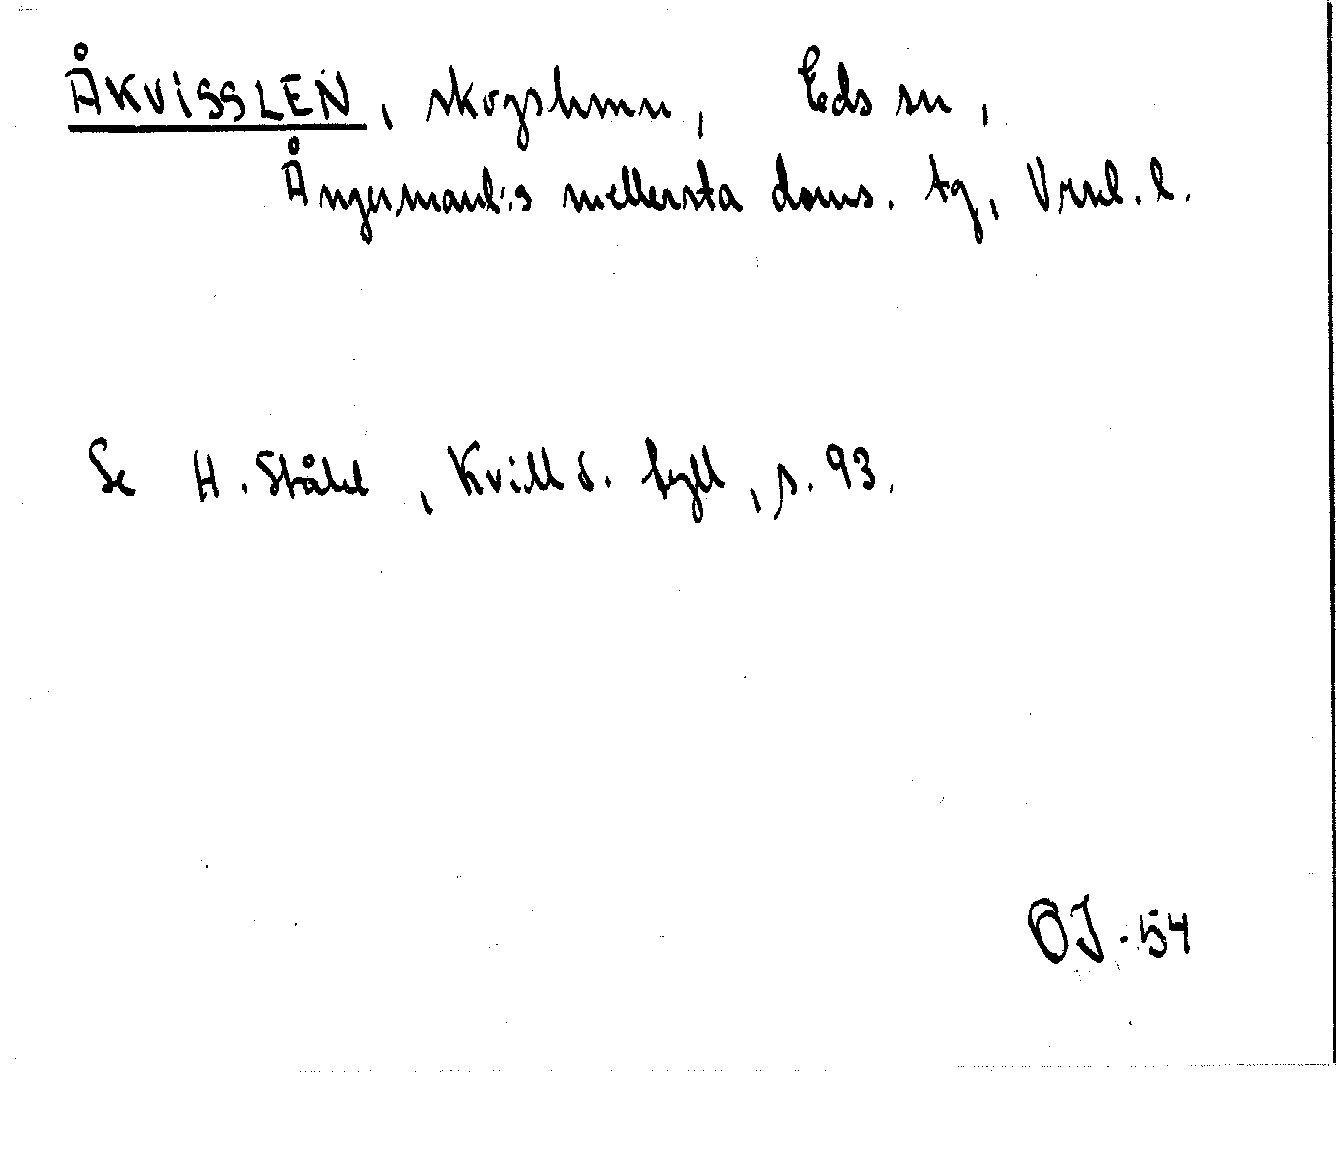 ÅKVISSLEN, skogshmn, Eds sn,
Ångermanl:s mellersta doms. tg, Vrnl. l.
Se H. Ståhl, Kvill o. tyll, s. 93.
OJ. 54